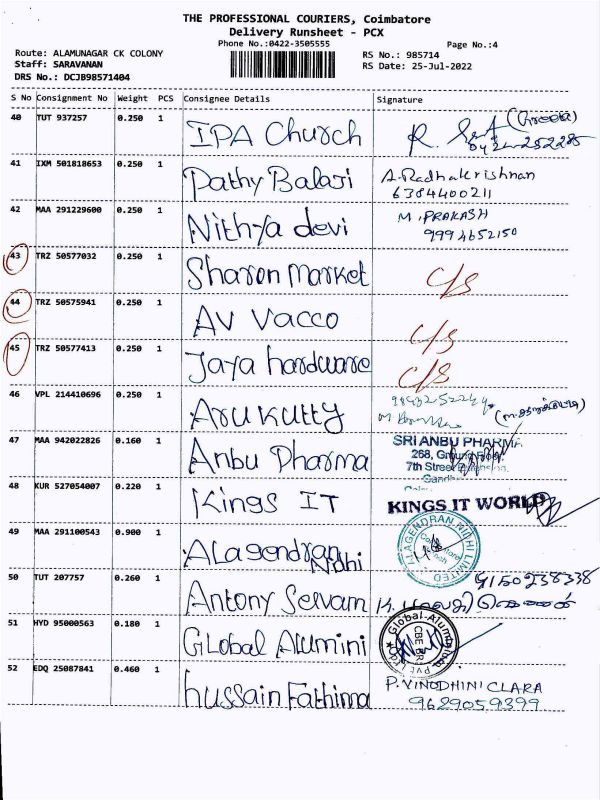 THE PROFESSIONAL COURIERS, Coimbatore
Delivery Runsheet - PCX
Phone No.:0422-3505555
Page No.:4
Route: ALAMUNAGAR CK COLONY
RS No.: 985714
Staff: SARAVANAN
RS Date: 25-Jul-2022
DRS No.: DCJB98571404
S No Consignment No Weight PCS Consignee Details Signature
40 TUT 937257 0.250 1 IPA Church
41 IXM 501818653 0.250 1 Pathy Balaji A.Radhakrishnan
6384400211
42 MAA 291229600 0.250 1 Nithya devi M.PRAKASH
9994652150
43 TRZ 50577032 0.250 1 Sharon Market C/S
44 TRZ 50575941 0.250 1 AV Vacco C/S
45 TRZ 50577413 0.250 1 Jaya hardware C/S
46 VPL 214410696 0.250 1 Arukutty
47 MAA 942022826 0.160 1 Anbu Pharma SRI ANBU PHARMA
268, Ground Floor
7th Street
48 KUR 527054007 0.220 1 Kings IT KINGS IT WORLD
49 MAA 291100543 0.900 1 ALagendran Nidhi ALAGENDRAN NIDHI LIMITED
50 TUT 207757 0.260 1 Antony Selvam 9150238338
51 HYD 95000563 0.180 1 GLobal Alumini Global-Alumini
52 EDQ 25087841 0.460 1 hussain Fathima P.VINODHINI CLARA
9629059399